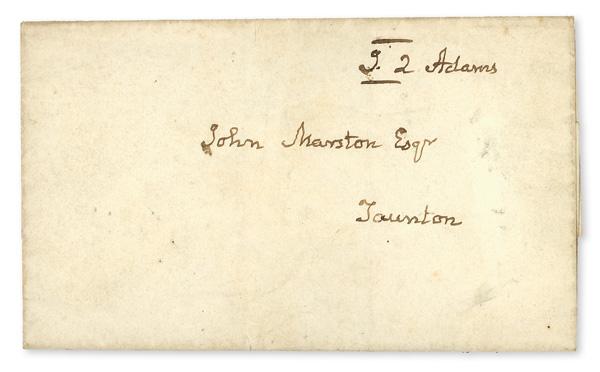 J. 2 Adams
John Marston Esqr
Taunton